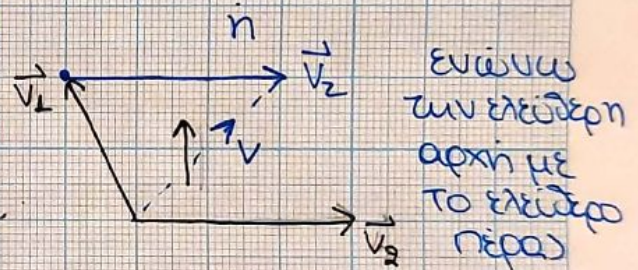 ή
V⃗₁
V⃗₂
V
V⃗₂
ενώνω
την ελεύθερη
αρχή με
το ελεύθερο
πέρας